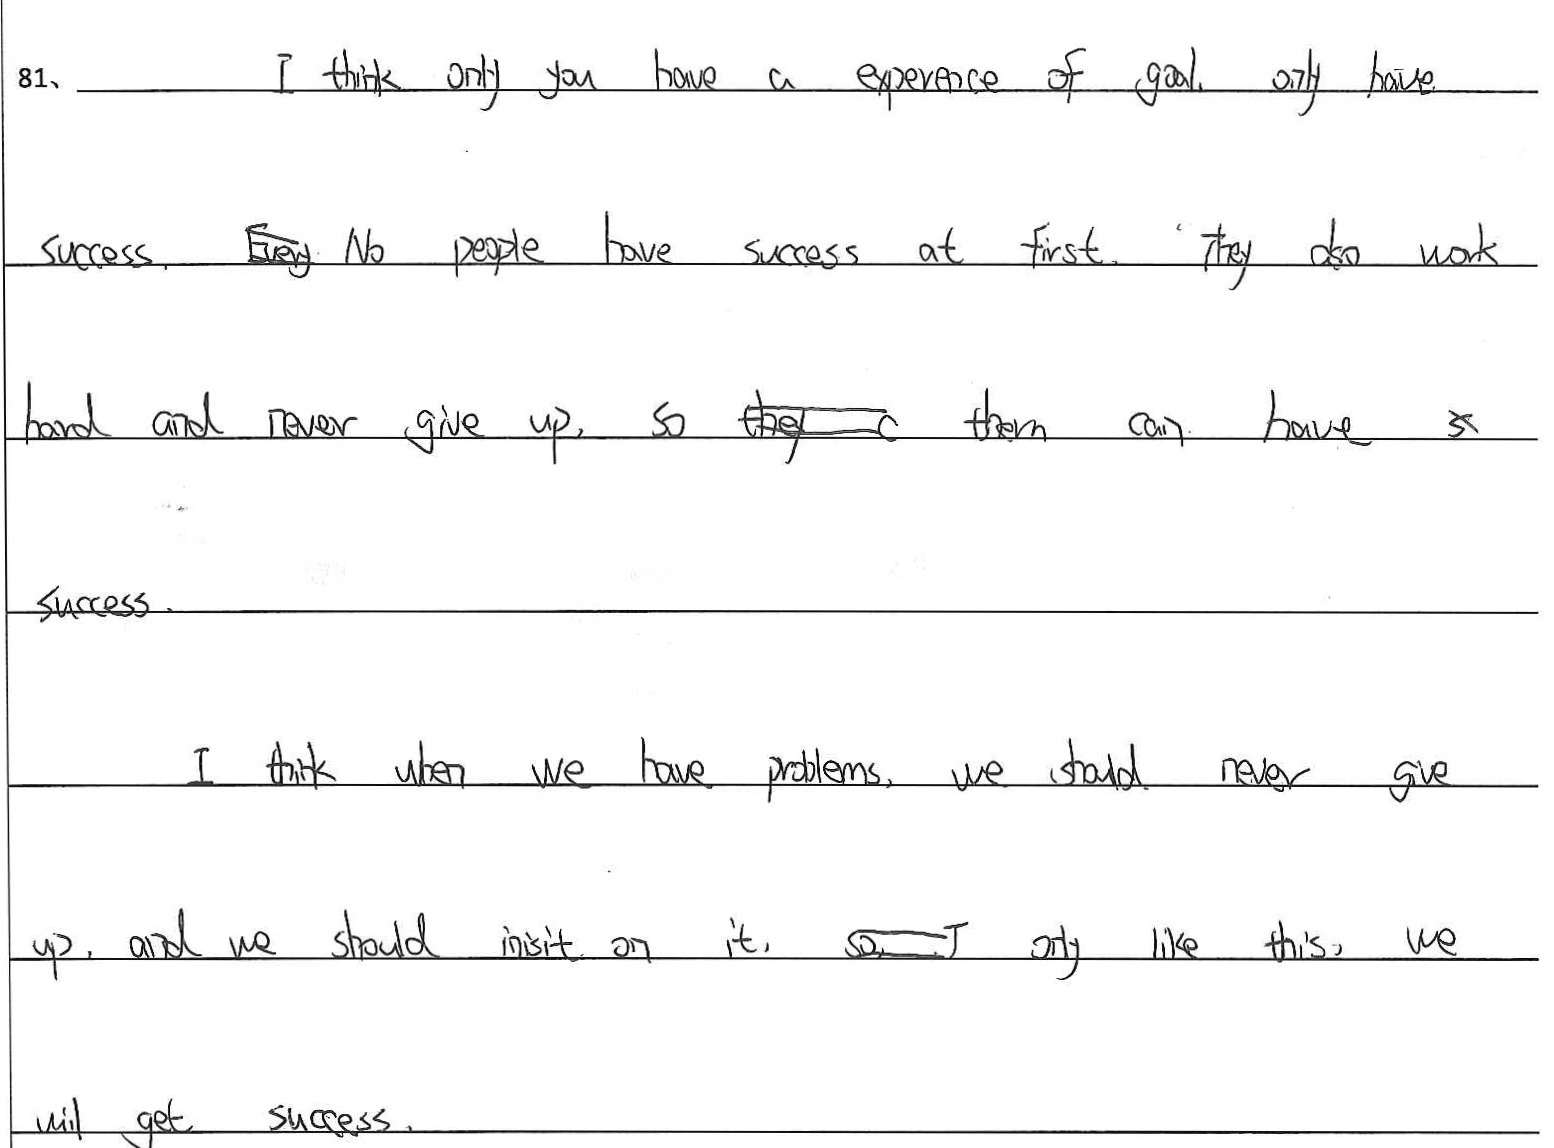 81、 I think only you have a experence of goal. only have
success. No people have success at first. They also work
hard and never give up, so them can have
success.
I think when we have problems, we should never give
up, and we should insit on it, only like this, we
will get success.